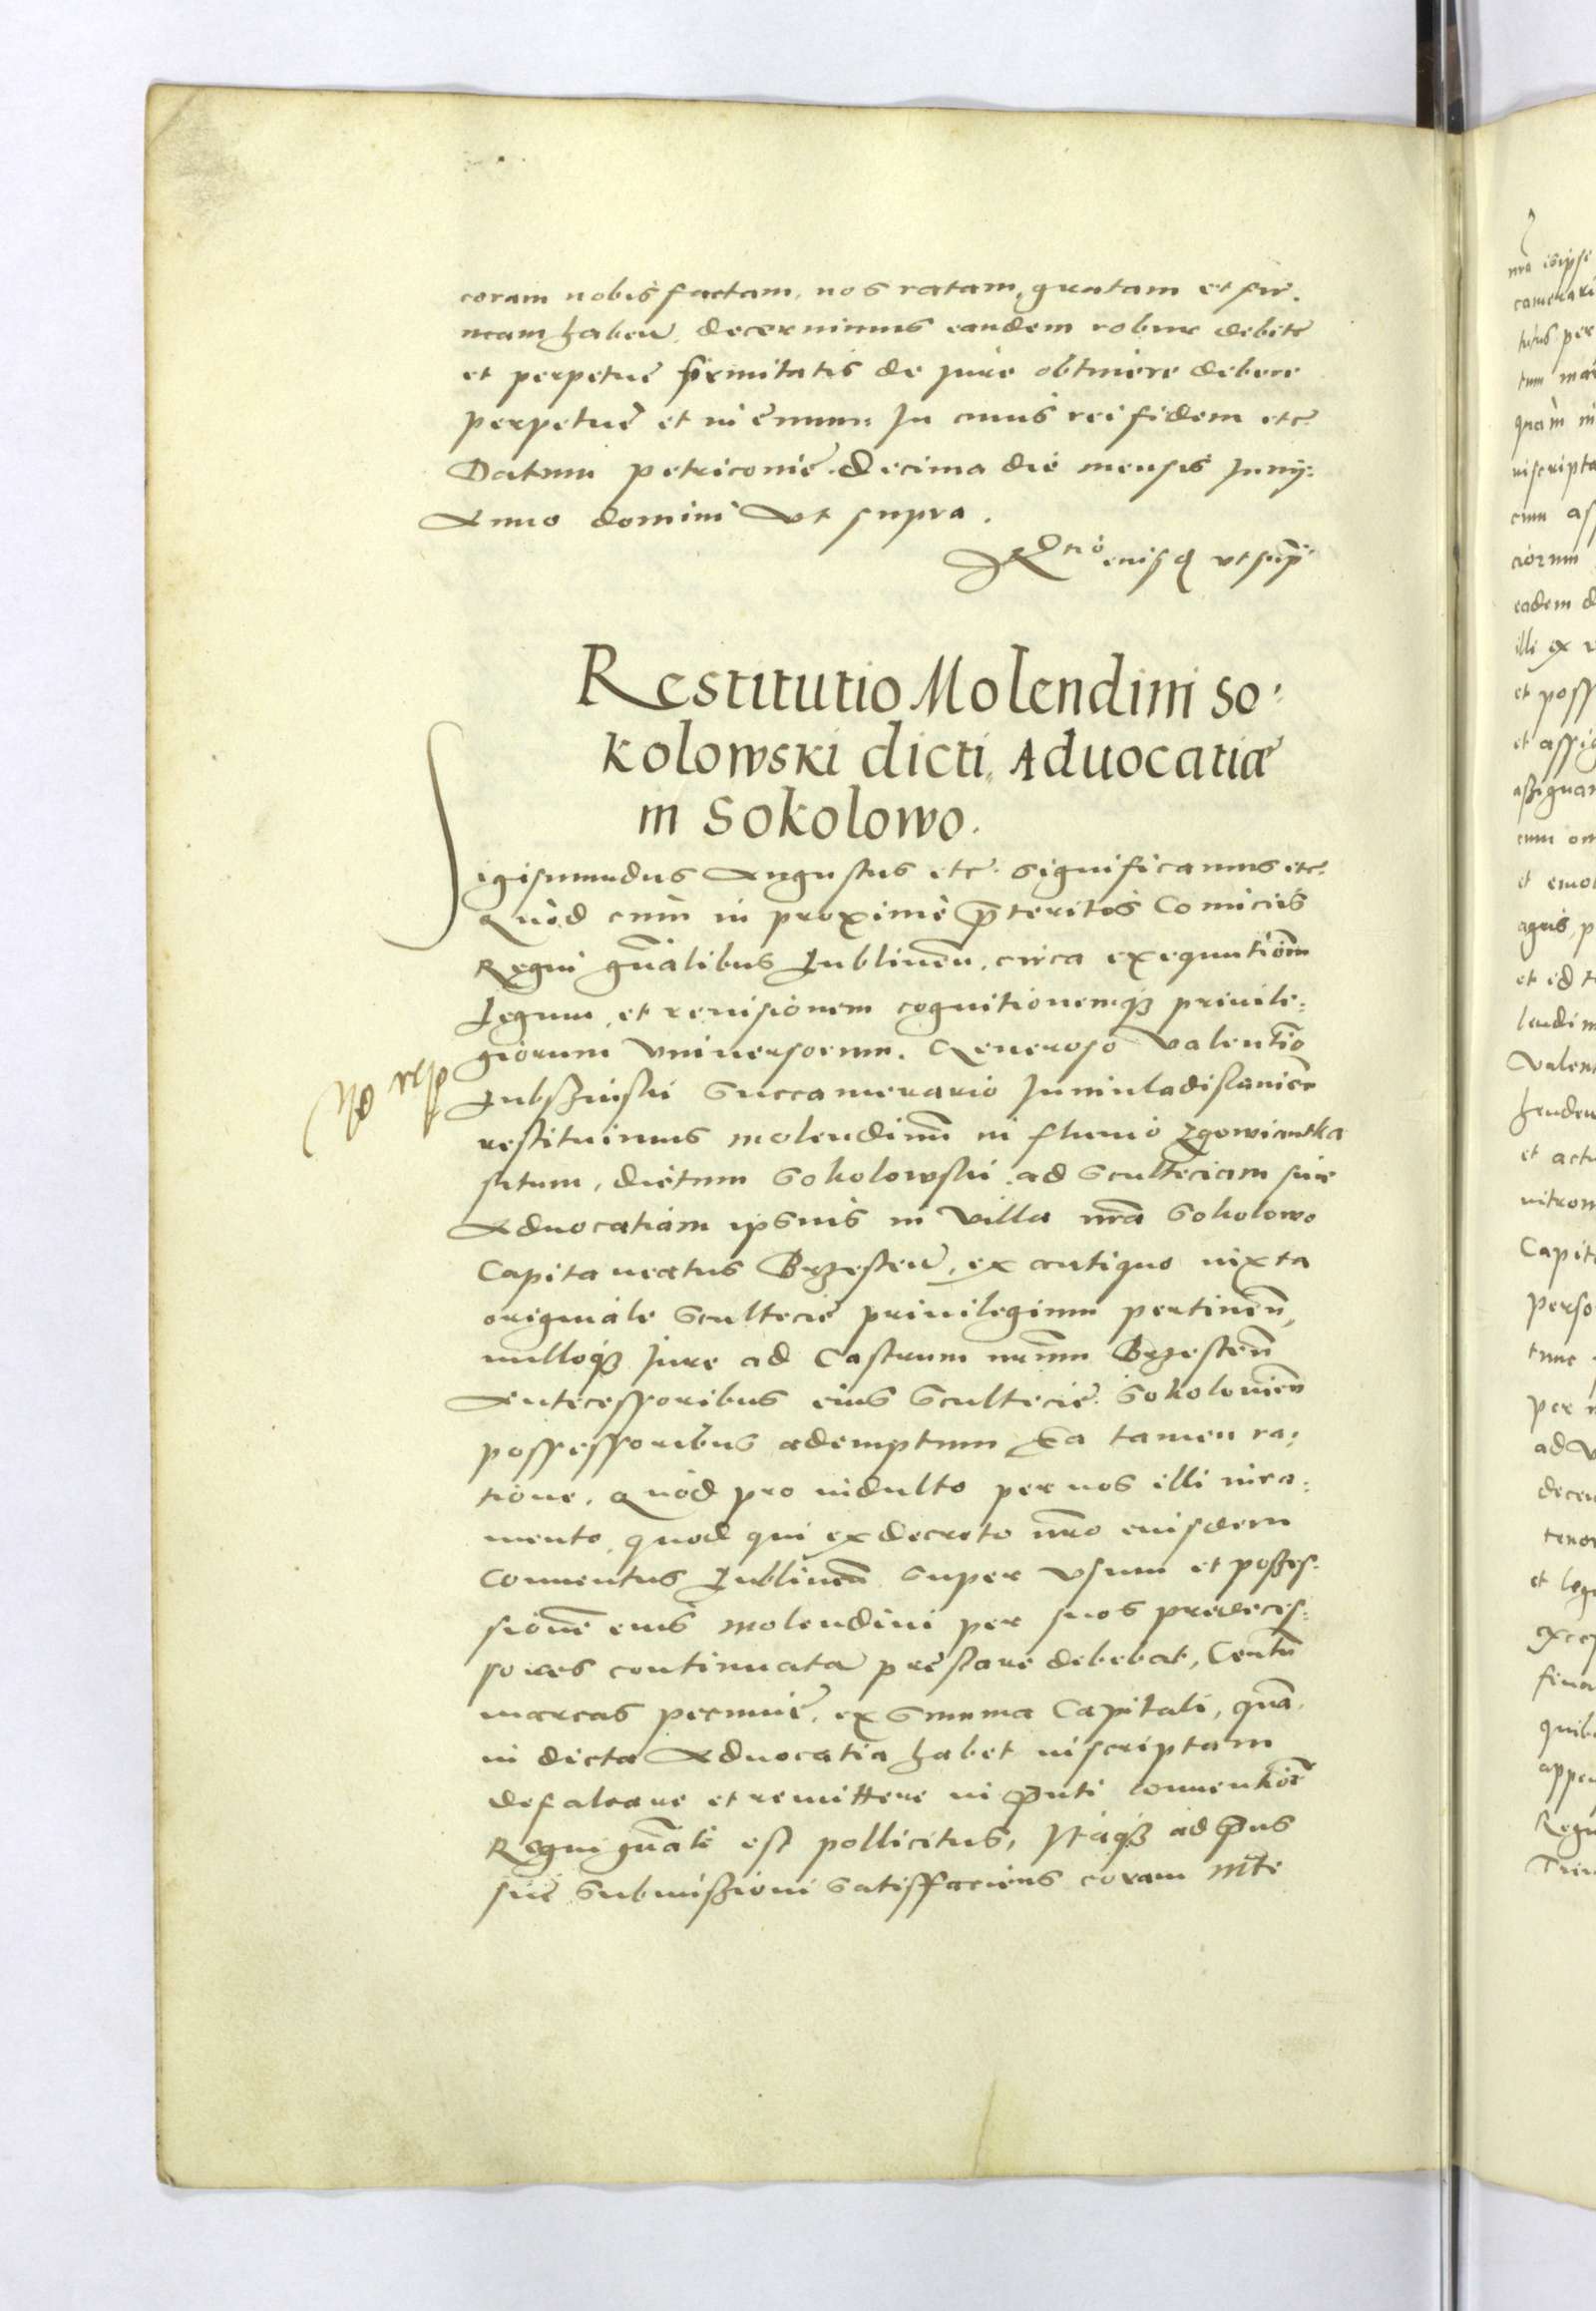 coram nobis factam, nos ratam, gratam et fir:
mam haben̄. decernimus eandem robur debite
et perpetue firmitatis de jure obtinere debere
perpetuè et in ęuum: In cuius rei fidem etc.
Datum petricouię. Decima die mensis Junij.
Anno domini Vt supra.
R[elati]o eiusd vt sup̃
Restitutio Molendini So:
kolowski dicti, Aduocatiæ
in Sokolowo.
Sigismundus Augustus etc. significamus etc.
Quòd cum in proximè p̄teritis Comiciis
Regni gn̄alibus Lublinen̄. circa exequutiōm
Legum, et reuisionem cognitionemq₃ priuile:
giorum Vniuersorum. Generoso Valentīo
Lubszinski Succamerario Juniuladislauien̄
restituimus molendinū in fluuio Zgowiantka
situm, dictum Sokolowski. ad Scultec̄iam siue
Aduocatiam ipsius in Villa nr̄a Sokolowo
Capitaneatus Brzesten̄, ex antiquo iuxta
originale Scultecię priuilegium pertinen̄,
nulloq₃ Jure ad Castrum nr̄um Brzesten̄
Antecessoribus eius Scultecię. Sokolouien̄
possessoribus ademptum Ea tamen ra:
tione. Quòd pro indulto per nos illi iura:
mento, quod qui ex decreto nr̄o eiusdem
Conuentus Lublinen̄ super Vsum et posses:
sionē eius molendini per suos predeces:
sores continuata prestare debebat, Centū
marcas pecunię. ex Summa Capitali, quā
in dicta Aduocatia habet inscriptam
defalcare et remittere in p̄nti Conuentiōe
Regni gn̄ali est pollicitus, Itaq₃ ad p̄ns
suę Submissioni Satisffaciens coram Mte